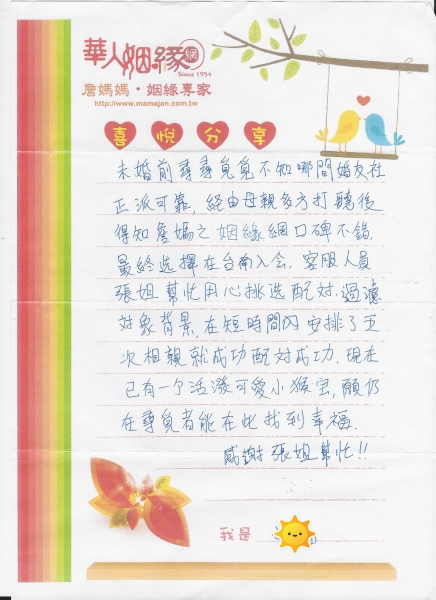 華人姻緣網
Since 1954
詹媽媽・姻緣專家
http://www.mamajan.com.tw
喜悅分享
未婚前尋尋覓覓不知哪間婚友社
正派可靠，經由母親多方打聽後
得知詹媽之姻緣網口碑不錯.
最終选擇在台南入会，客服人員
張姐幫忙用心挑选配对.過濾
对象背景，在短時間內安排了五
次相親就成功配对成功.現在
已有一个活潑可愛小猴宝，願仍
在尋覓者能在此找到幸福.
感謝張姐幫忙!!
我是